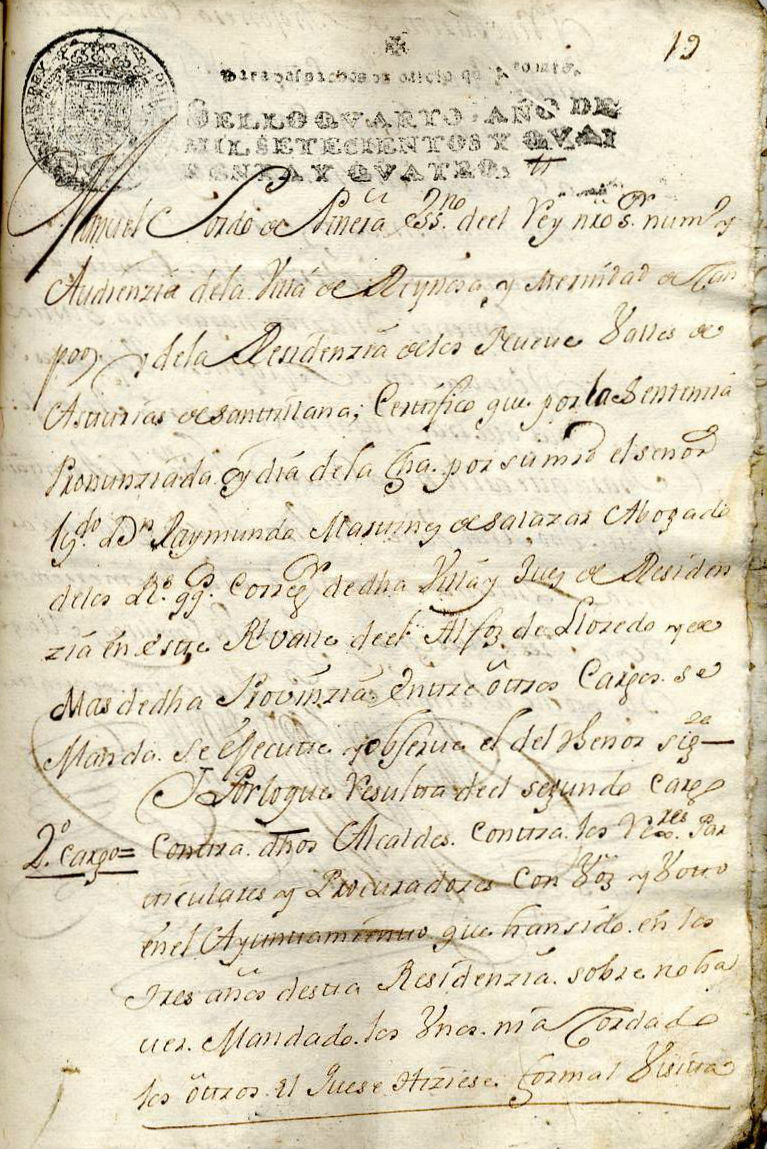 19
Para despachos de oficio quatro mrs.
SELLO QVARTO, AÑO DE
MIL SETECIENTOS Y QVAI
RENTA Y QVATRO.
Manuel de Ess.no deel Rey nro S.r num.o y
Audienzia de la Villa de Reynosa y Merindad de Cam
poo, y de la Residenzia de los Nueve Valles de
Asturias de Santillana; Certifico que por la Sentenzia
Pronunziada oy dia de la fha. por su mrd el señor
lz.do d Dn Raymundo Martinez de Salazar Abogado
delos R.s Correg.r de dha Villa y Juez de Residen
zia en este Rl valle deel Alfoz de Lloredo y de
Mas de dha Provinzia. Entre ôtros Cargos. se
Manda. se êjecute y observe el del thenor sig.te
Por lo que Resulta deel segundo Cargo
2.o cargo= Contra. dhos Alcaldes. Contra. los Rexres. Par
ticulares y Procuradores con Voz y Voto
en el Ayuntamiento que han sido. en los
tres años desta Residenzia. sobre no ha
ver. Mandado. los Unos. ni aCordado
los ôtros. el que se Hiziese. formal Visita